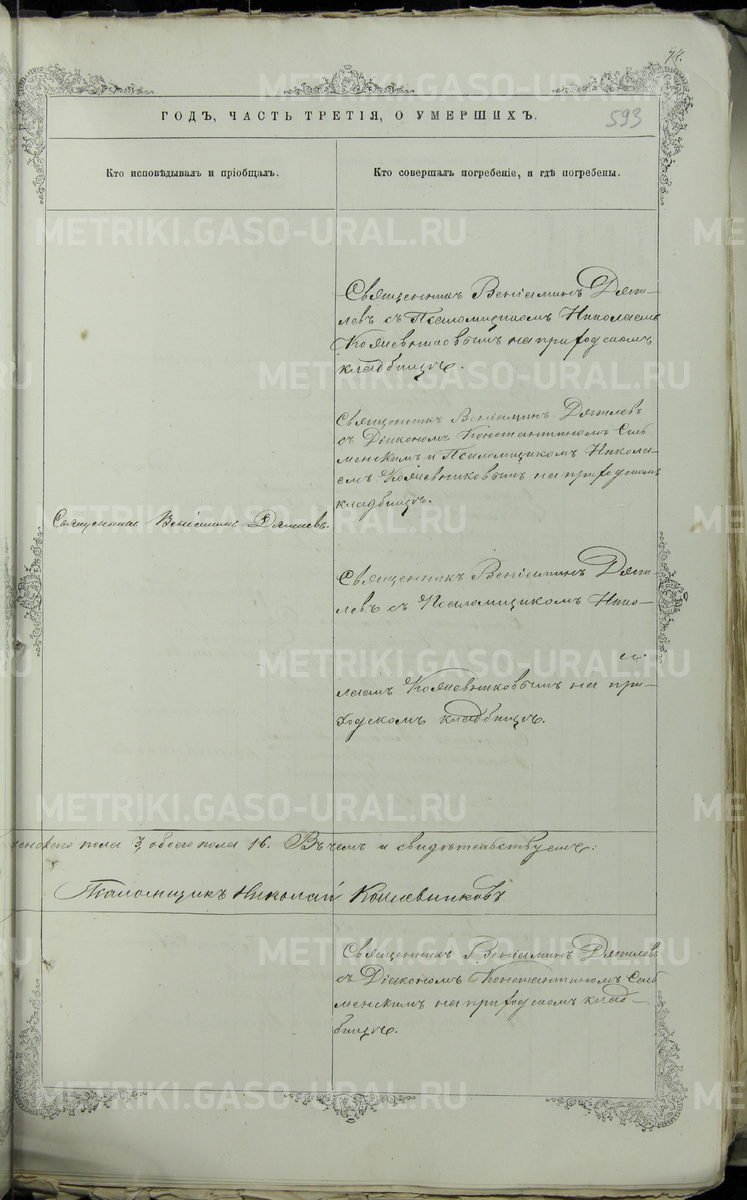 74.
593
ГОДЪ, ЧАСТЬ ТРЕТІЯ, О УМЕРШИХЪ.
Кто исповѣдывалъ и пріобщалъ.
Кто совершалъ погребеніе, и гдѣ погребены.
Священникъ Веніаминъ Дягилевъ.
Священникъ Веніаминъ Дяги-
левъ съ Псаломщикомъ Николаемъ
Кожевниковымъ на приходскомъ
кладбищѣ.
Священникъ Веніаминъ Дягилевъ
съ Діакономъ Константиномъ Сель
менскимъ и Псаломщикомъ Никола-
емъ Кожевниковымъ на приходскомъ
кладбищѣ.
Священникъ Веніаминъ Дяги-
левъ съ Псаломщикомъ Нико-
лаемъ Кожевниковымъ на при-
ходскомъ кладбищѣ.
женскаго пола 3, обоего пола 16. Въ чемъ и свидѣтельствуемъ:
Псаломщикъ Николай Кожевниковъ
Священникъ Веніаминъ Дягилевъ
съ Діакономъ Константиномъ Сель
менскимъ на приходскомъ клад-
бищѣ.
METRIKI.GASO-URAL.RU